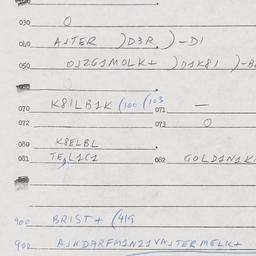 030 0
040 AJTER )D3R )-D1
050 OJ2G1MOLK+ )D1K81 )-B
070 K81LB1K (100 (103
071 —
072
073 0
080 K8ELBL
081 TE,L1C1
082 GOLD1N1K
900 BRIST+ (419
902 AJNDARFM1N21VAJTERMELK+